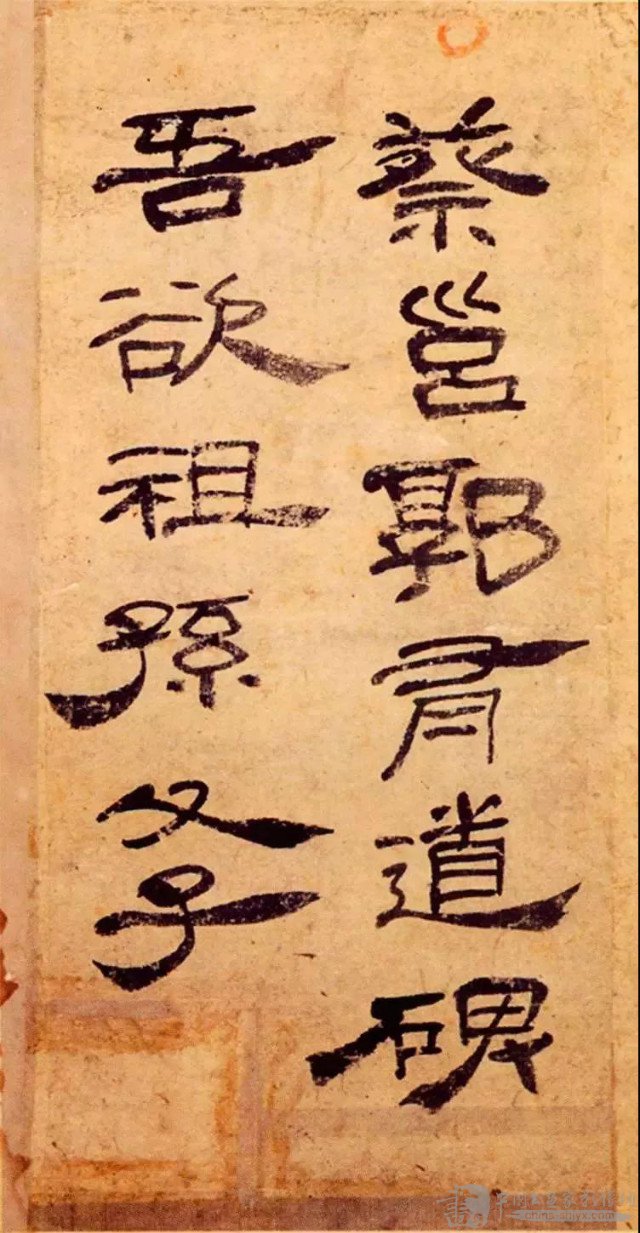 蔡邕郭有道碑
吾欲祖孫父子